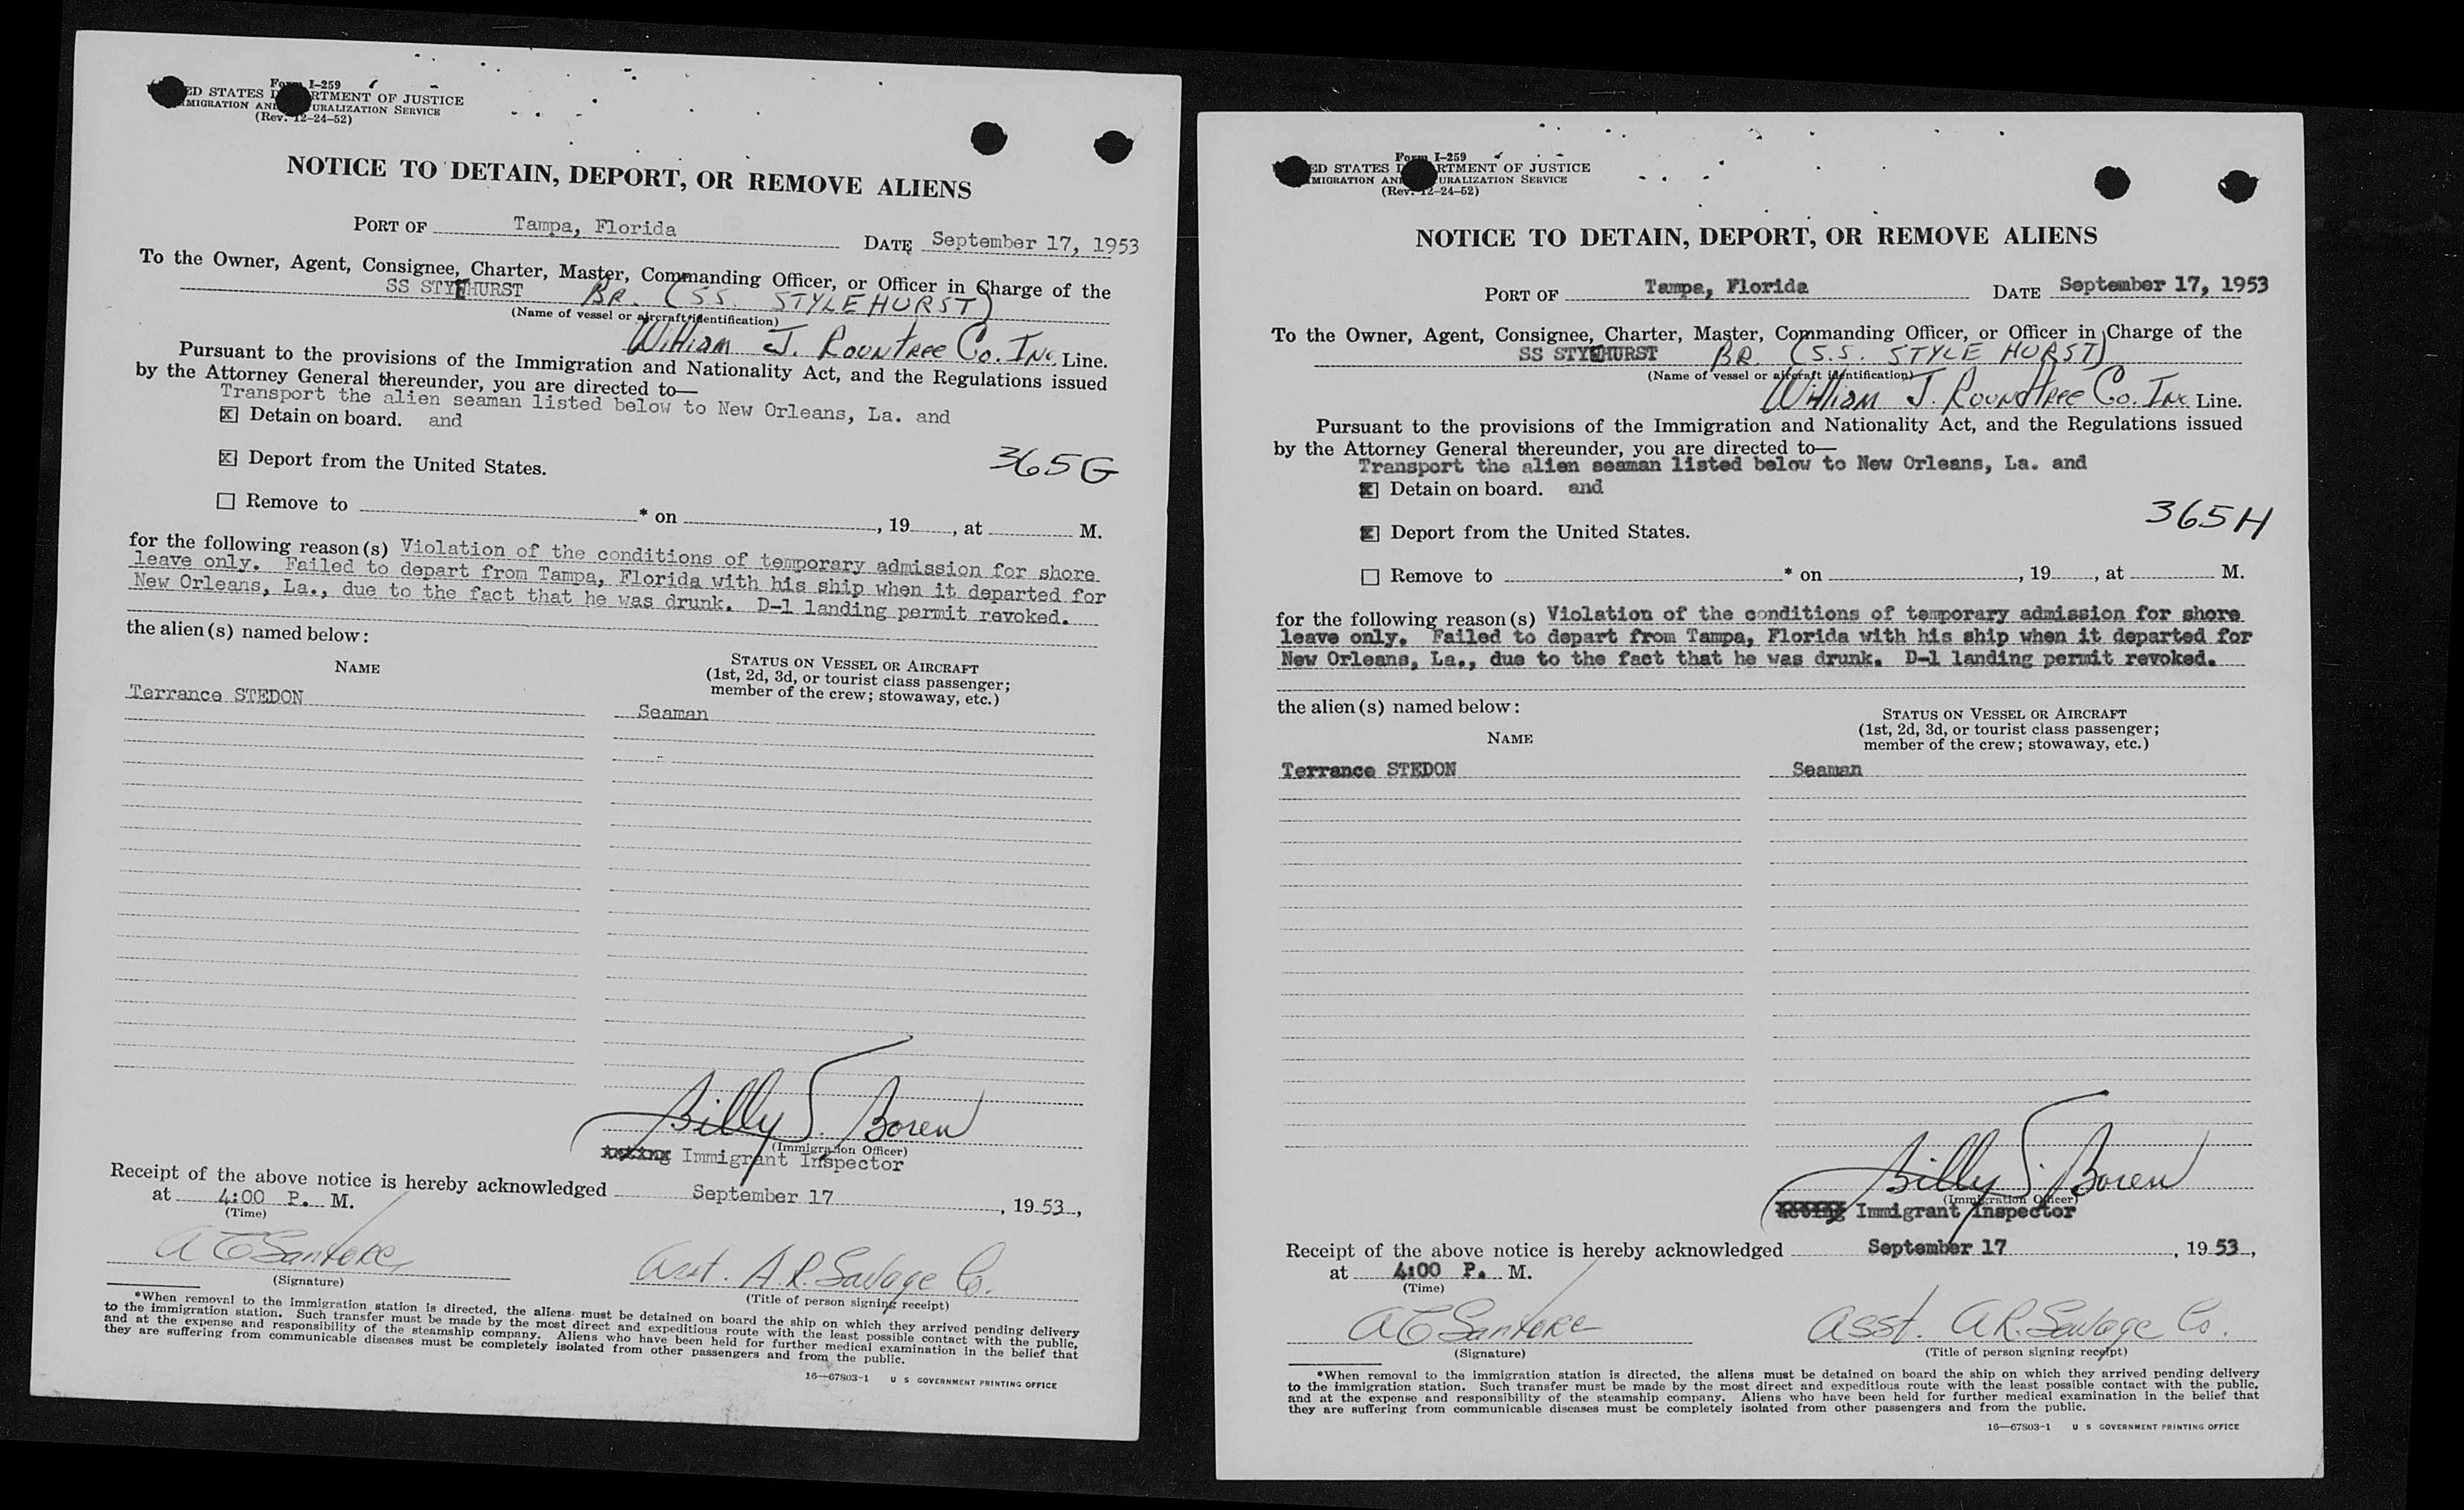 Form I-259
ED STATES D RTMENT OF JUSTICE
MMIGRATION AND URALIZATION SERVICE
(Rev. 12-24-52)
NOTICE TO DETAIN, DEPORT, OR REMOVE ALIENS
PORT OF Tampa, Florida DATE September 17, 1953
To the Owner, Agent, Consignee, Charter, Master, Commanding Officer, or Officer in Charge of the
SS STYEHURST BR. (S.S. STYLEHURST)
(Name of vessel or aircraft identification)
William J. Rountree Co. Inc. Line.
Pursuant to the provisions of the Immigration and Nationality Act, and the Regulations issued
by the Attorney General thereunder, you are directed to—
Transport the alien seaman listed below to New Orleans, La. and
☒ Detain on board. and
☒ Deport from the United States.
365G
☐ Remove to * on , 19 , at M.
for the following reason(s) Violation of the conditions of temporary admission for shore
leave only. Failed to depart from Tampa, Florida with his ship when it departed for
New Orleans, La., due to the fact that he was drunk. D-1 landing permit revoked.
the alien(s) named below:
NAME
STATUS ON VESSEL OR AIRCRAFT
(1st, 2d, 3d, or tourist class passenger;
member of the crew; stowaway, etc.)
Terrance STEDON Seaman
Billy S. Boren
(Immigration Officer)
Acting Immigrant Inspector
Receipt of the above notice is hereby acknowledged September 17, 19 53,
at 4:00 P. M.
(Time)
Asst. A.R. Savage Co.
(Signature) (Title of person signing receipt)
*When removal to the immigration station is directed, the aliens must be detained on board the ship on which they arrived pending delivery
to the immigration station. Such transfer must be made by the most direct and expeditious route with the least possible contact with the public,
and at the expense and responsibility of the steamship company. Aliens who have been held for further medical examination in the belief that
they are suffering from communicable diseases must be completely isolated from other passengers and from the public.
16—67803-1 U S GOVERNMENT PRINTING OFFICE
Form I-259
ED STATES D RTMENT OF JUSTICE
MIGRATION AN URALIZATION SERVICE
(Rev. 12-24-52)
NOTICE TO DETAIN, DEPORT, OR REMOVE ALIENS
PORT OF Tampa, Florida DATE September 17, 1953
To the Owner, Agent, Consignee, Charter, Master, Commanding Officer, or Officer in Charge of the
SS STYEHURST BR. (S.S. STYLE HURST)
(Name of vessel or aircraft identification)
William J. Roundtree Co. Inc. Line.
Pursuant to the provisions of the Immigration and Nationality Act, and the Regulations issued
by the Attorney General thereunder, you are directed to—
Transport the alien seaman listed below to New Orleans, La. and
☒ Detain on board. and
☒ Deport from the United States.
365H
☐ Remove to * on , 19 , at M.
for the following reason(s) Violation of the conditions of temporary admission for shore
leave only. Failed to depart from Tampa, Florida with his ship when it departed for
New Orleans, La., due to the fact that he was drunk. D-1 landing permit revoked.
the alien(s) named below:
NAME
STATUS ON VESSEL OR AIRCRAFT
(1st, 2d, 3d, or tourist class passenger;
member of the crew; stowaway, etc.)
Terrance STEDON Seaman
Billy S. Boren
(Immigration Officer)
Acting Immigrant Inspector
Receipt of the above notice is hereby acknowledged September 17, 19 53,
at 4:00 P. M.
(Time)
Asst. A.R. Savage Co.
(Signature) (Title of person signing receipt)
*When removal to the immigration station is directed, the aliens must be detained on board the ship on which they arrived pending delivery
to the immigration station. Such transfer must be made by the most direct and expeditious route with the least possible contact with the public,
and at the expense and responsibility of the steamship company. Aliens who have been held for further medical examination in the belief that
they are suffering from communicable diseases must be completely isolated from other passengers and from the public.
16—67803-1 U S GOVERNMENT PRINTING OFFICE